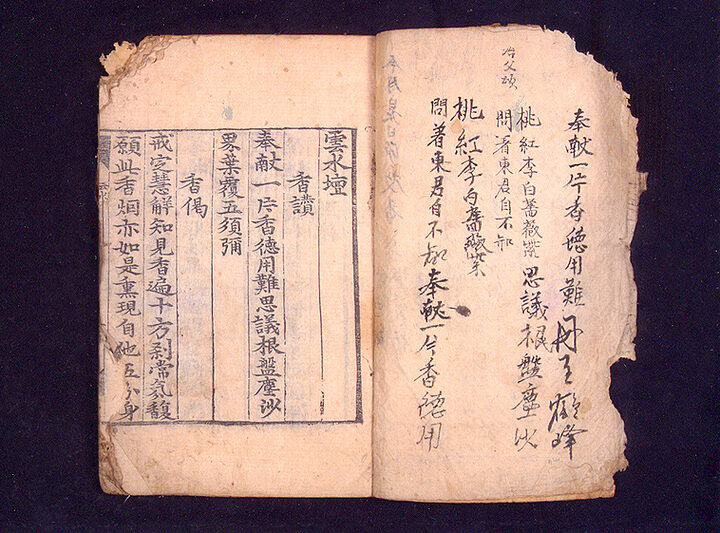 奉献一片香德用難
桃紅李白薔薇紫思議根盤塵沙
問着東君自不知
冶父頌
桃紅李白薔薇紫
問着東君自不知奉献一片香德用
雲水壇
香讃
奉献一片香德用難思議根盤塵沙
界葉覆五須彌
香偈
戒定慧解知見香遍十方刹常氛馥
願此香烟亦如是熏現自他五分身